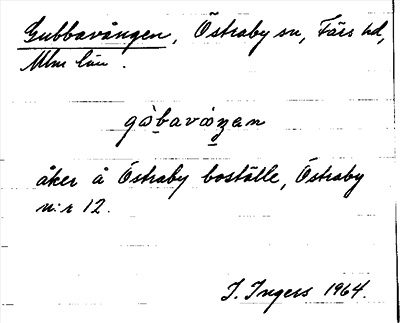 Gubbavången, Östraby sn, Färs hd,
Mlm län.
gàbavàŋan
åker å Östraby boställe, Östraby
n:r 12.
I. Ingers 1964.